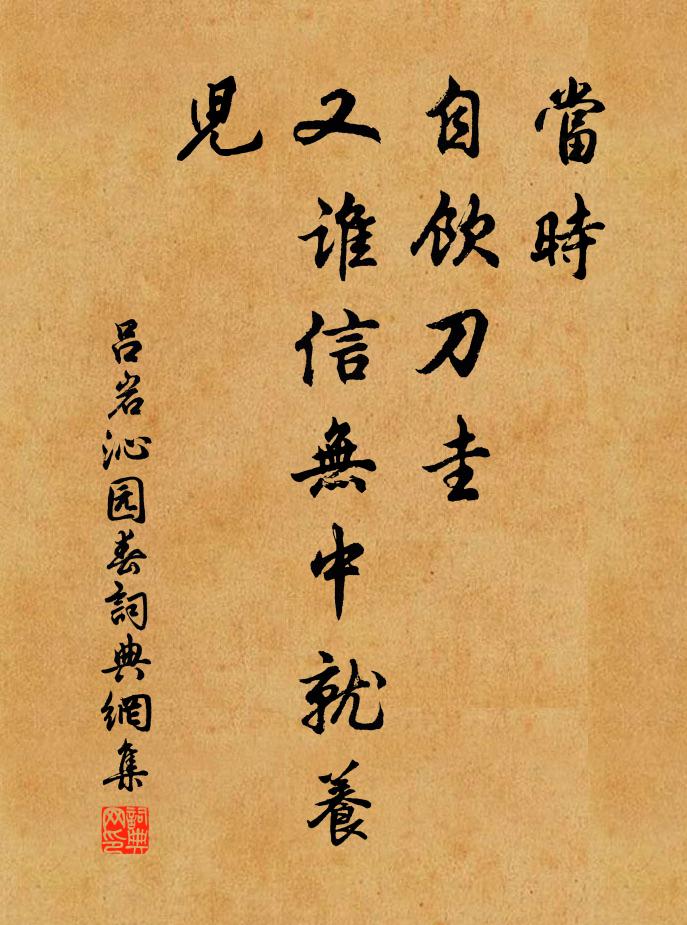 當時
自飲刀圭
又誰信無中就養
兒
吕岩沁园春詞典網集
詞典网印